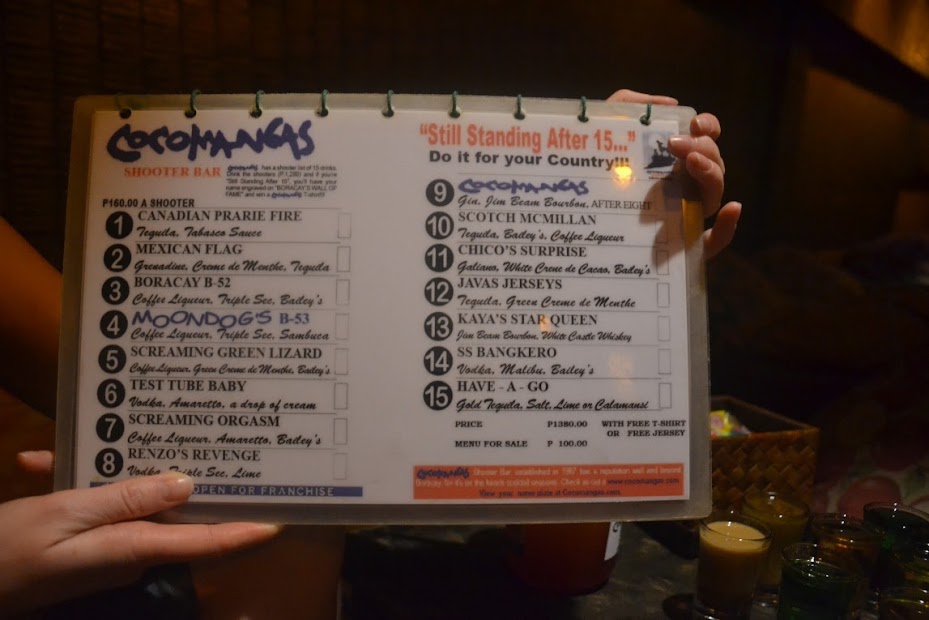 COCOMANGAS
SHOOTER BAR
has a shooter list of 15 drinks.
Drink the shooters (P.1,280) and if you're
"Still Standing After 15", you'll have your
name engraved on "BORACAY'S WALL OF
FAME" and win a T-shirt!!
P160.00 A SHOOTER
1 CANADIAN PRARIE FIRE
Tequila, Tabasco Sauce
2 MEXICAN FLAG
Grenadine, Creme de Menthe, Tequila
3 BORACAY B-52
Coffee Liqueur, Triple Sec, Bailey's
4 MOONDOG'S B-53
Coffee Liqueur, Triple Sec, Sambuca
5 SCREAMING GREEN LIZARD
Coffee Liqueur, Green Creme de Menthe, Bailey's
6 TEST TUBE BABY
Vodka, Amaretto, a drop of cream
7 SCREAMING ORGASM
Coffee Liqueur, Amaretto, Bailey's
8 RENZO'S REVENGE
Vodka, Triple Sec, Lime
OPEN FOR FRANCHISE
"Still Standing After 15..."
Do it for your Country!!!
9 COCOMANGAS
Gin, Jim Beam Bourbon, AFTER EIGHT
10 SCOTCH MCMILLAN
Tequila, Bailey's, Coffee Liqueur
11 CHICO'S SURPRISE
Galiano, White Crene de Cacao, Bailey's
12 JAVAS JERSEYS
Tequila, Green Creme de Menthe
13 KAYA'S STAR QUEEN
Jim Beam Bourbon, White Castle Whiskey
14 SS BANGKERO
Vodka, Malibu, Bailey's
15 HAVE - A - GO
Gold Tequila, Salt, Lime or Calamansi
PRICE P1380.00 WITH FREE T-SHIRT
OR FREE JERSEY
MENU FOR SALE P 100.00
COCOMANGAS Shooter Bar, established in 1987 has a reputation well and beyond
Boracay for it's on the beach cocktail sessions. Check us out @ www.cocomangas.com
View your name plate at Cocomangas.com